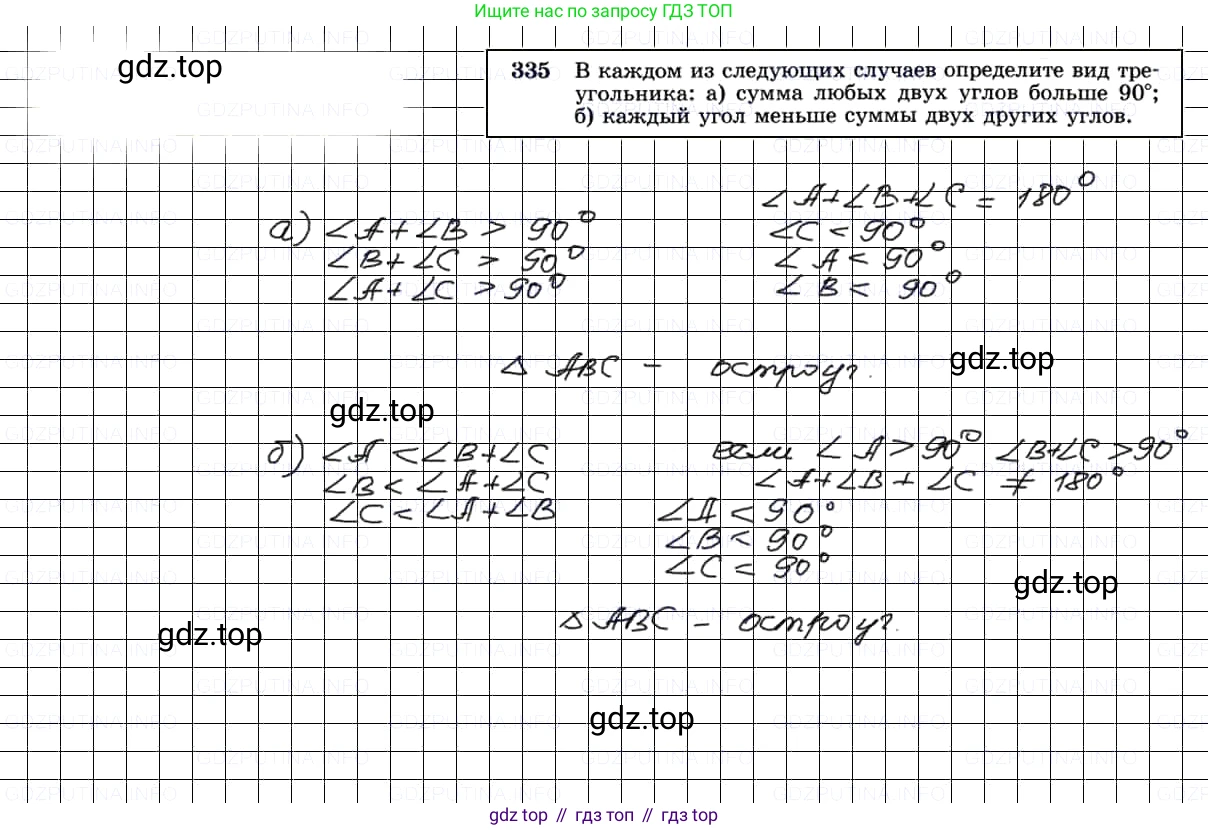 Ищите нас по запросу ГДЗ ТОП
gdz.top
335 В каждом из следующих случаев определите вид тре-
угольника: а) сумма любых двух углов больше 90°;
б) каждый угол меньше суммы двух других углов.
∠A+∠B+∠C = 180°
а) ∠A+∠B > 90°
∠C < 90°
∠B+∠C > 90°
∠A < 90°
∠A+∠C > 90°
∠B < 90°
△ ABC – остроуг.
gdz.top
gdz.top
б) ∠A < ∠B+∠C
если ∠A > 90° ∠B+∠C > 90°
∠B < ∠A+∠C
∠A+∠B+∠C ≠ 180°
∠C < ∠A+∠B
∠A < 90°
∠B < 90°
∠C < 90°
gdz.top
△ ABC – остроуг.
gdz.top
gdz.top
gdz top // гдз топ // гдз top